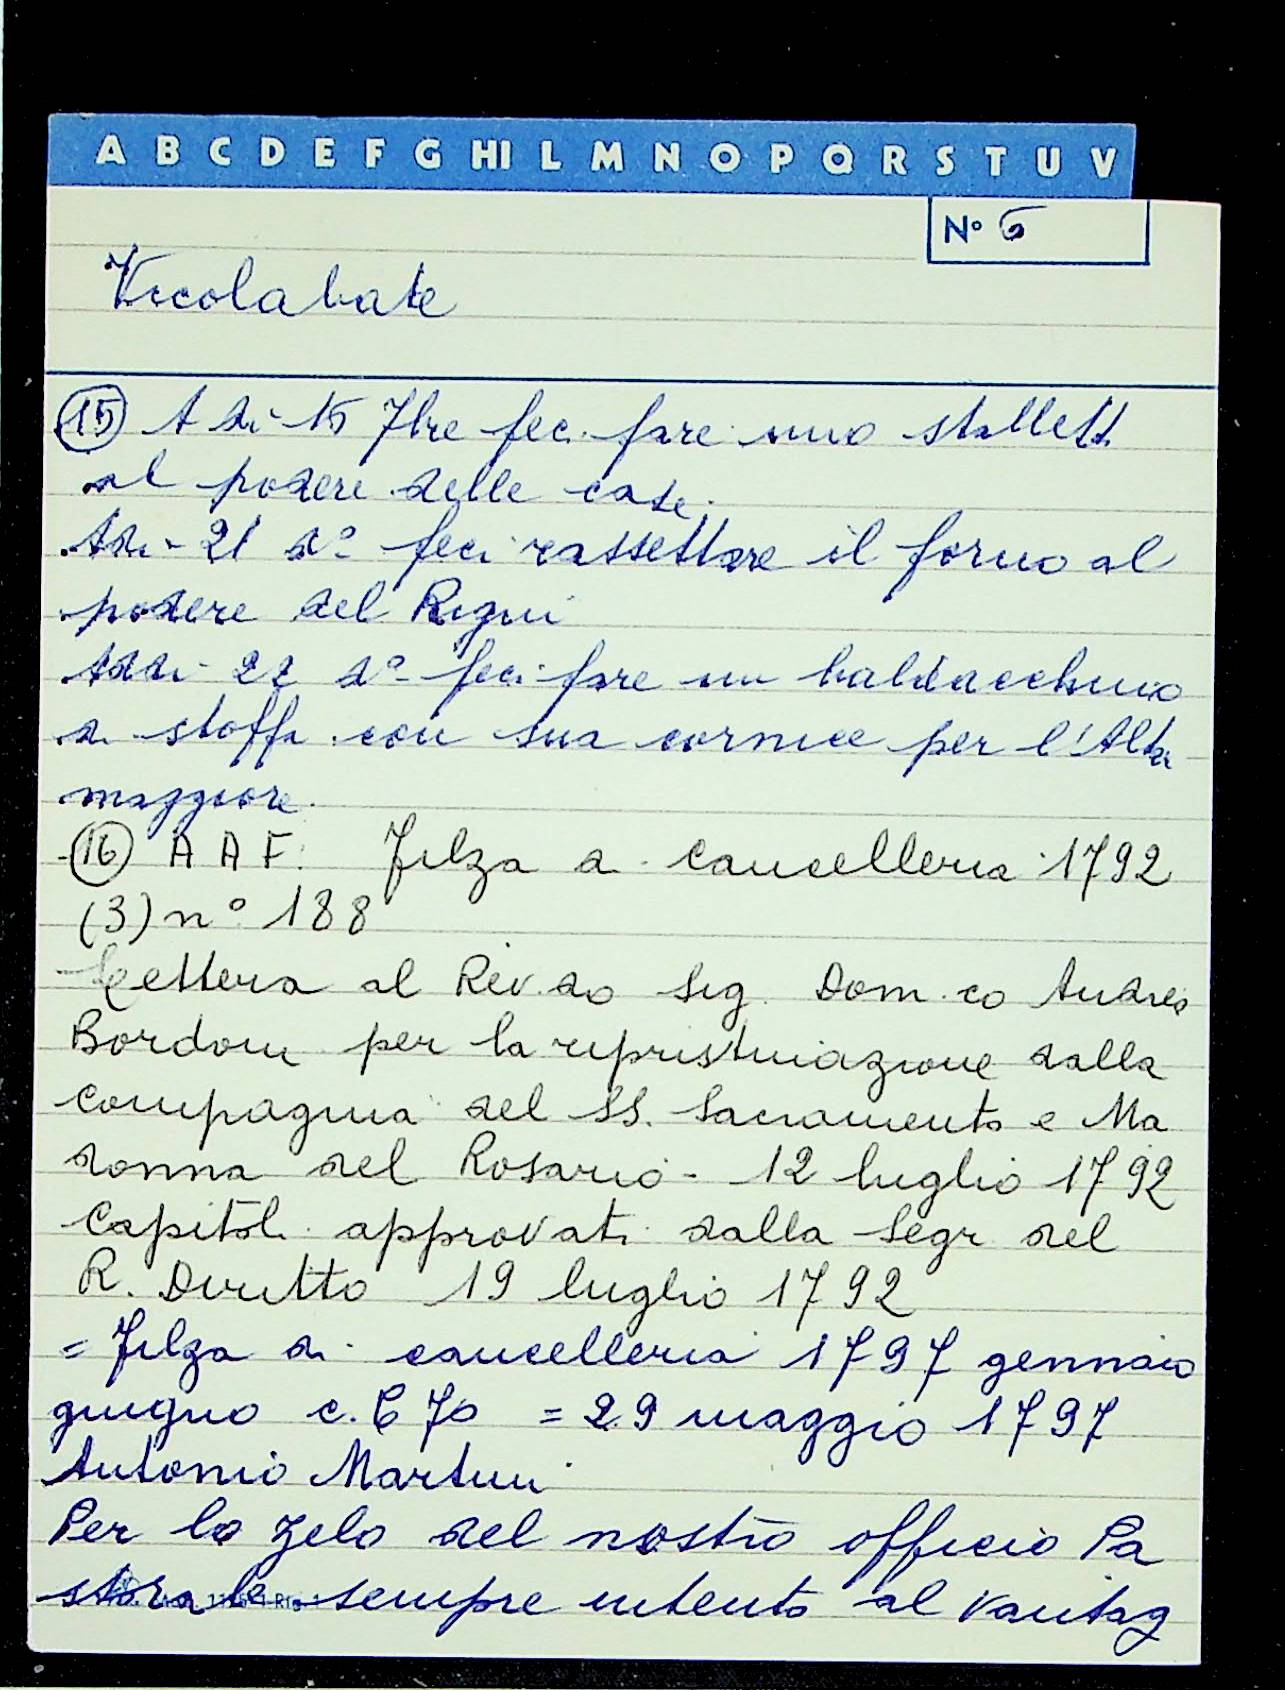 A B C D E F G HI L M N O P Q R S T U V
N° 6
Vicolabate
(15) A di 15 7bre feci fare uno stallett.
al podere delle case.
Adi 21 d° feci rassettare il forno al
podere del Rigni
Addi 22 d° feci fare un baldacchino
di stoffa con sua cornice per l'Altar
maggiore.
(16) A A F. Filza di cancelleria 1792
(3) n° 188
Lettera al Rev.do Sig. Dom.co Andrea
Bordoni per la ripristinazione dalla
compagnia del SS. Sacramento e Ma
donna del Rosario - 12 luglio 1792
Capitoli approvati dalla Segr del
R. Diritto 19 luglio 1792
= Filza di cancelleria 1797 gennaio
giugno c. 670 = 29 maggio 1797
Antonio Martini
Per lo zelo del nostro officio Pa
storale sempre intento al vantag